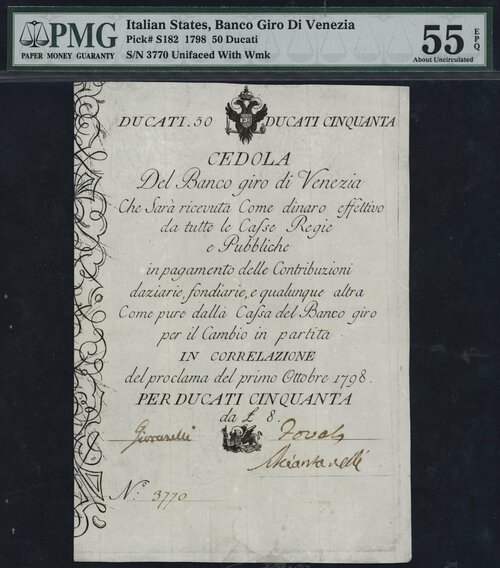 PMG
PAPER MONEY GUARANTY
Italian States, Banco Giro Di Venezia
Pick# S182 1798 50 Ducati
S/N 3770 Unifaced With Wmk
55 EPQ
About Uncirculated
DUCATI. 50 DUCATI CINQUANTA
CEDOLA
Del Banco giro di Venezia
Che Sarà ricevuta Come dinaro effettivo
da tutte le Casse Regie
e Pubbliche
in pagamento delle Contribuzioni
daziarie, fondiarie, e qualunque altra
Come pure dalla Cassa del Banco giro
per il Cambio in partita
IN CORRELAZIONE
del proclama del primo Ottobre 1798.
PER DUCATI CINQUANTA
da £ 8.
N.° 3770